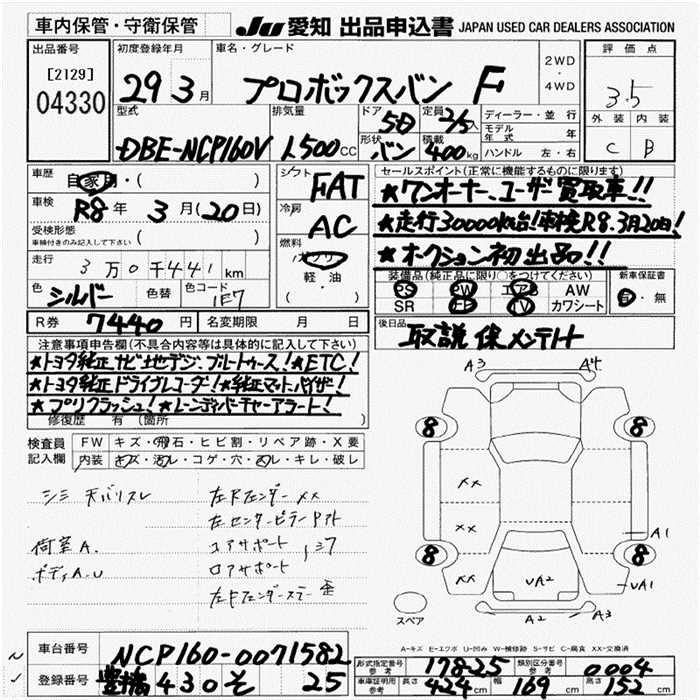 車内保管・守衛保管
JU 愛知 出品申込書 JAPAN USED CAR DEALERS ASSOCIATION
出品番号 初度登録年月 車名・グレード 2WD・4WD 評価点
[2129]
04330 29 3月 プロボックスバン F 3.5
型式 排気量 ドア 定員 ディーラー・並行 外装 内装
DBE-NCP160V 1500cc 5D 2/5人 モデル年式 年 C B
形状 積載
バン 400kg ハンドル 左・右
車歴 自家用・( ) シフト FAT セールスポイント(正常に機能するものに限ります)
車検 R8年 3月(20日) 冷房 AC ★ワンオーナー、ユーザー買取車!!
受検形態 ( ) ★走行30000km台!車検R8.3月20日!
車検付きのみ記入して下さい
走行 3万0千441km 燃料 ガソリン・軽油 ★オークション初出品!!
色 シルバー 色替 色コード 1E7 装備品(純正品に限り○をつけてください) 新車保証書
PS PW エアB AW 有・無
SR EF TV カワシート
R券 7440円 名変期限 月 日 後日品 取説 保 メンテノート
注意事項申告欄(不具合内容等は具体的に記入して下さい)
★トヨタ純正ナビ地デジ、ブルートゥース!★ETC!
★トヨタ純正ドライブレコーダー!★純正マット、バイザー!
★プリクラッシュ!★レーンディパーチャーアラート!
修復歴 有(箇所
検査員記入欄 FW キズ・飛石・ヒビ割・リペア跡・X要
内装 キズ・汚レ・コゲ・穴・スレ・キレ・破レ
A3 A4
8 8
シミ 天バリスレ 左Fフェンダー XX
左センターピラー
荷室A. コアサポート
ボディA.U ロアサポート
左Fフェンダーステー 歪
XX
XX
A1
8 8
XX UA2 UA1
スペア A2 A3
A-キズ E-エクボ U-凹み W-補修跡 S-サビ C-腐食 XX-交換済
車台番号 NCP160-0071582
登録番号 豊橋 430 そ 25
形式指定番号 17825 類別区分番号 0004
車検証明参考 長さ 424cm 幅 169cm 高さ 152cm